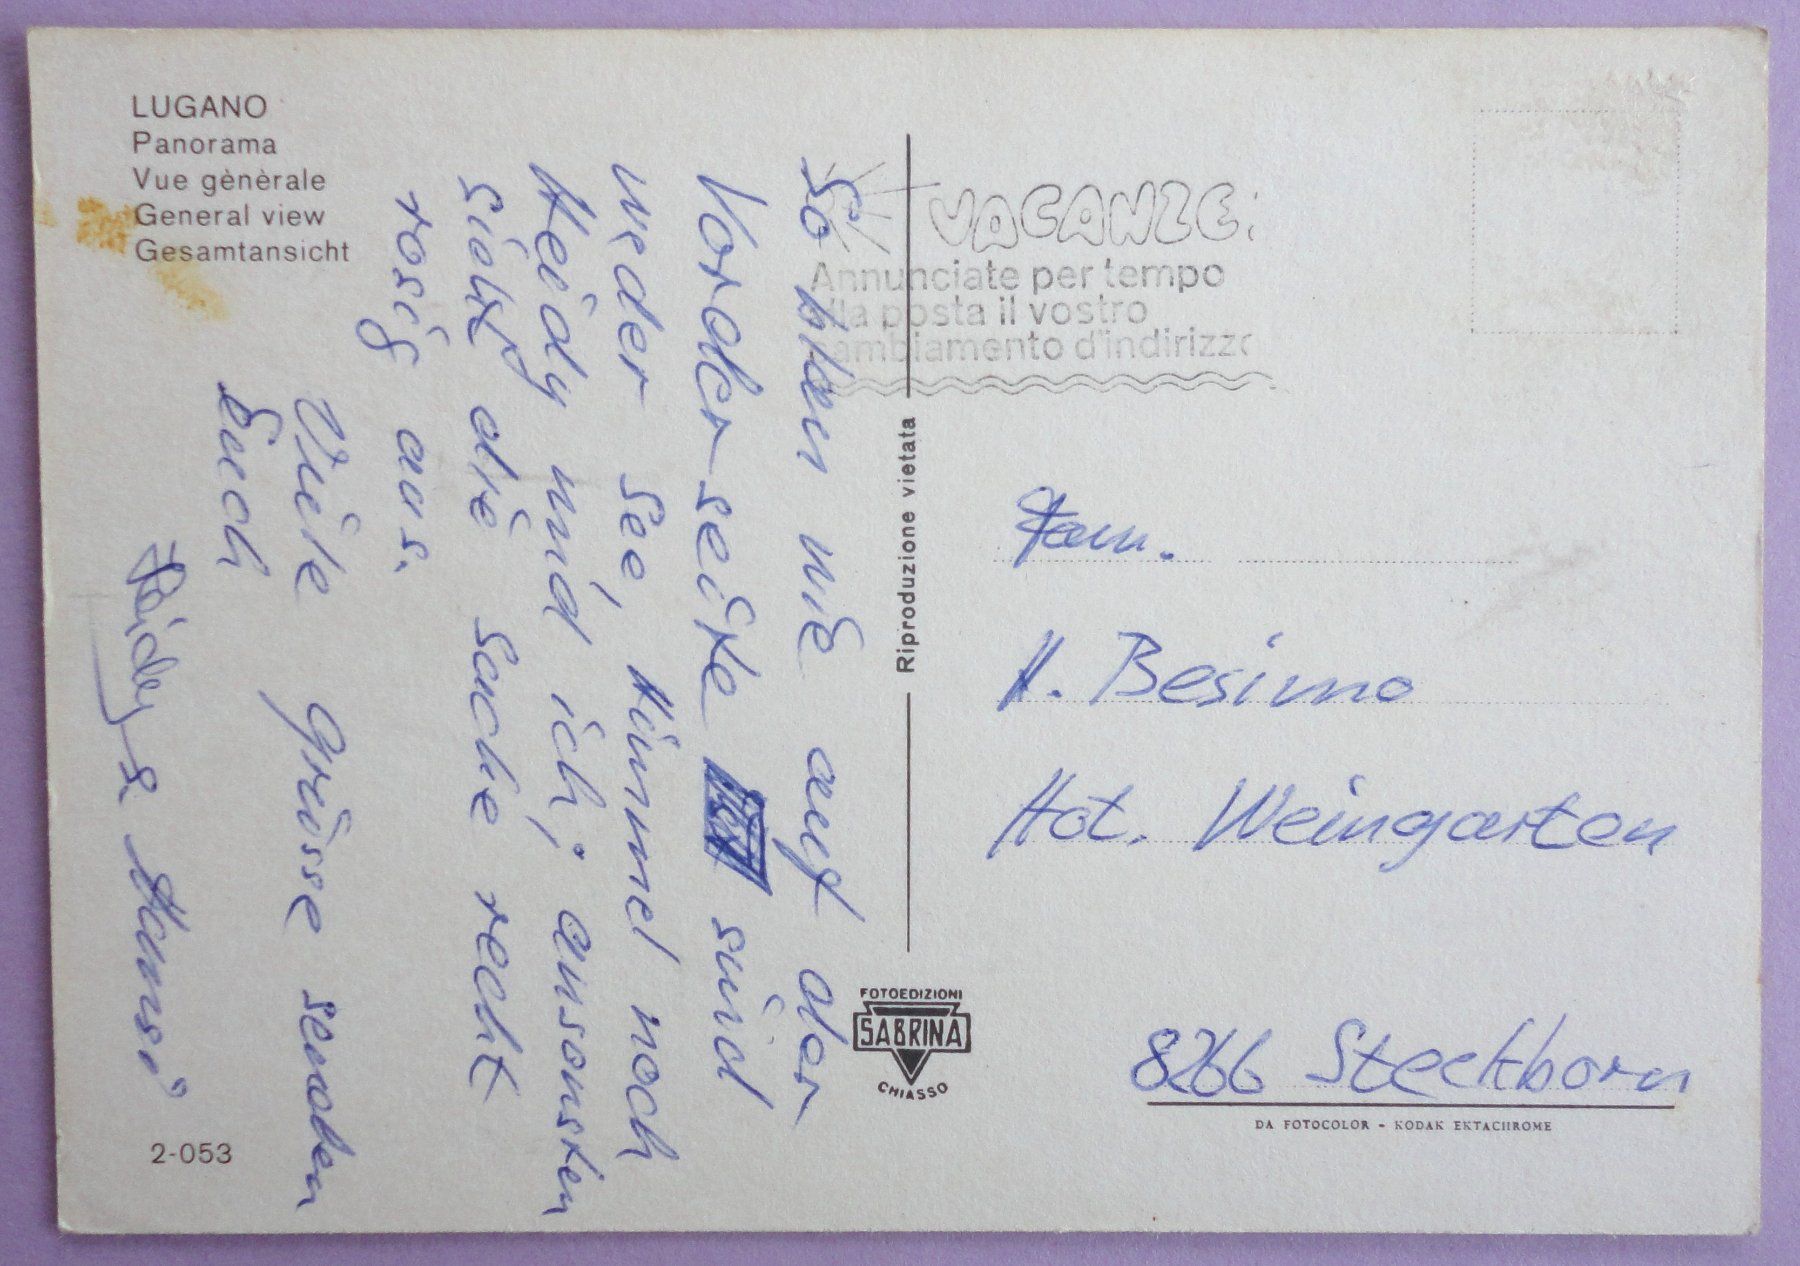 LUGANO
Panorama
Vue gènèrale
General view
Gesamtansicht
So blau wie auf der
Vorderseite sind
weder See, Himmel noch
Heidy und ich; ansonsten
sieht die Sache recht
rosig aus.
Viele Grüsse senden
Euch
Heidy & Hansi
2-053
VACANZE:
Annunciate per tempo
alla posta il vostro
cambiamento d'indirizzo
Riproduzione vietata
FOTOEDIZIONI
SABRINA
CHIASSO
Fam.
H. Besimo
Hot. Weingarten
8266 Steckborn
DA FOTOCOLOR - KODAK EKTACHROME